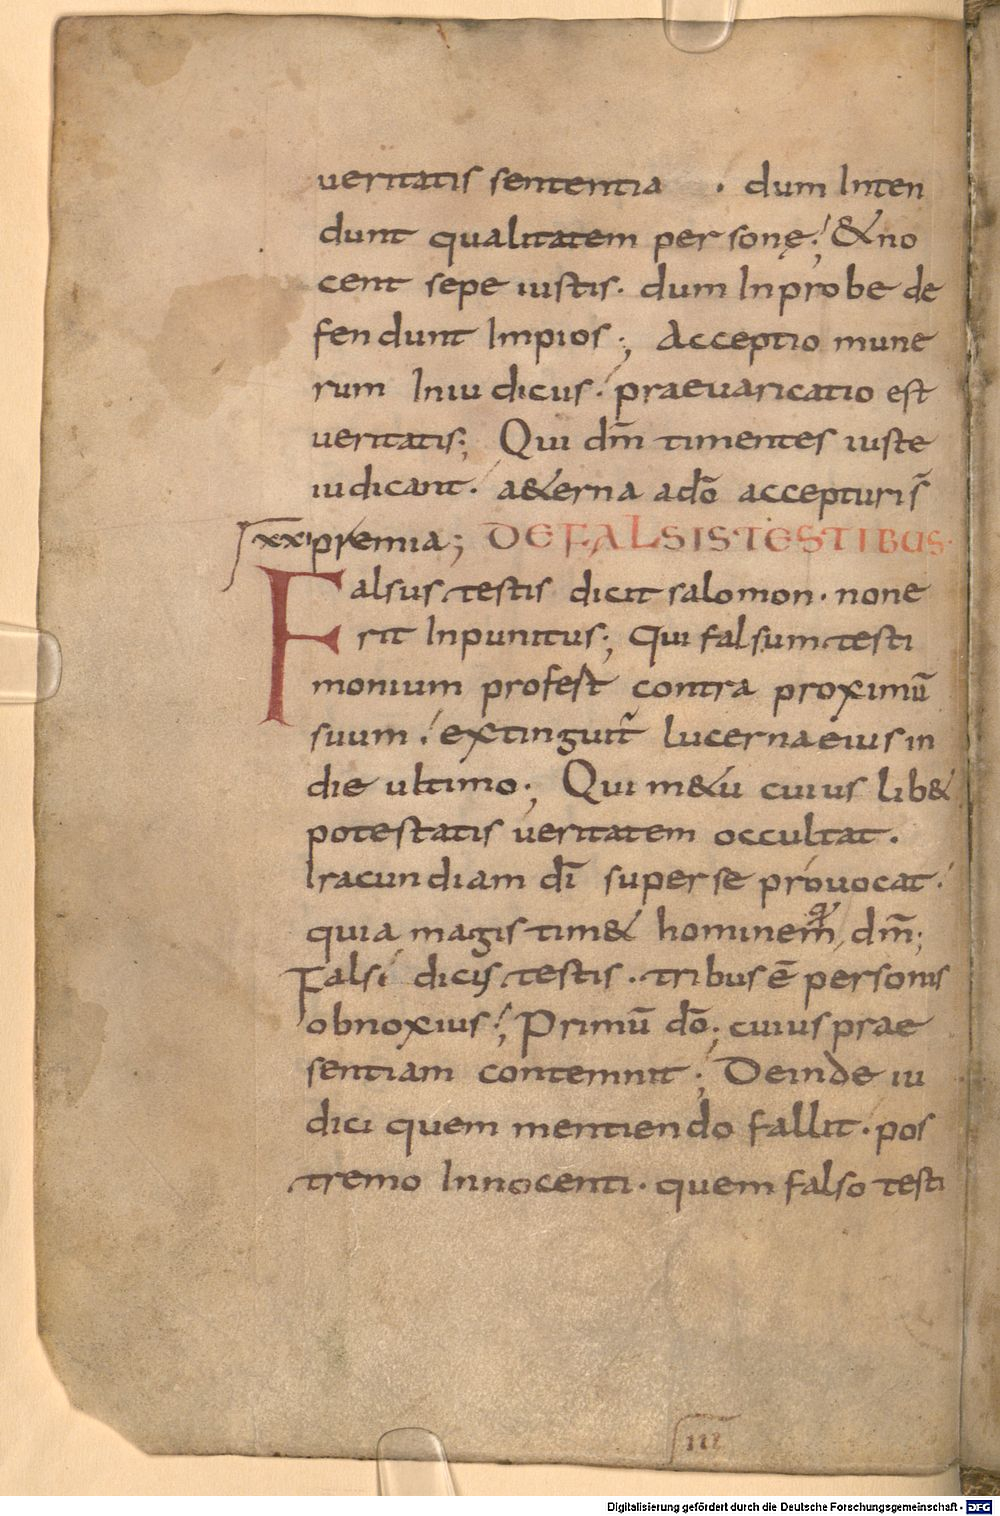 ueritatis sententia · dum Inten
dunt qualitatem personę; & no
cent sepe iustis· dum Inprobe de
fendunt Impios; Acceptio mune
rum In iudicus· praeuaricatio est
ueritatis; Qui dm̄ timentes iuste
iudicant· a&erna a dō accepturi s̄
XXI premia; DE FALSIS TESTIBUS·
Falsus testis dicit salomon· non e
rit Inpunitus; Qui falsum testi
monium profest contra proximū
suum· extinguit̄ lucerna eius in
die ultimo; Qui m&u cuius lib&
potestatis ueritatem occultat·
Iracundiam dī super se prouocat·
quia magis tim& hominem qͣ dm̄;
Falsi dicis testis· tribus ē personis
obnoxius; Primū dō; cuius prae
sentiam contemnit; Deinde iu
dici quem mentiendo fallit· pos
tremo Innocenti· quem falso testi
III
Digitalisierung gefördert durch die Deutsche Forschungsgemeinschaft - DFG